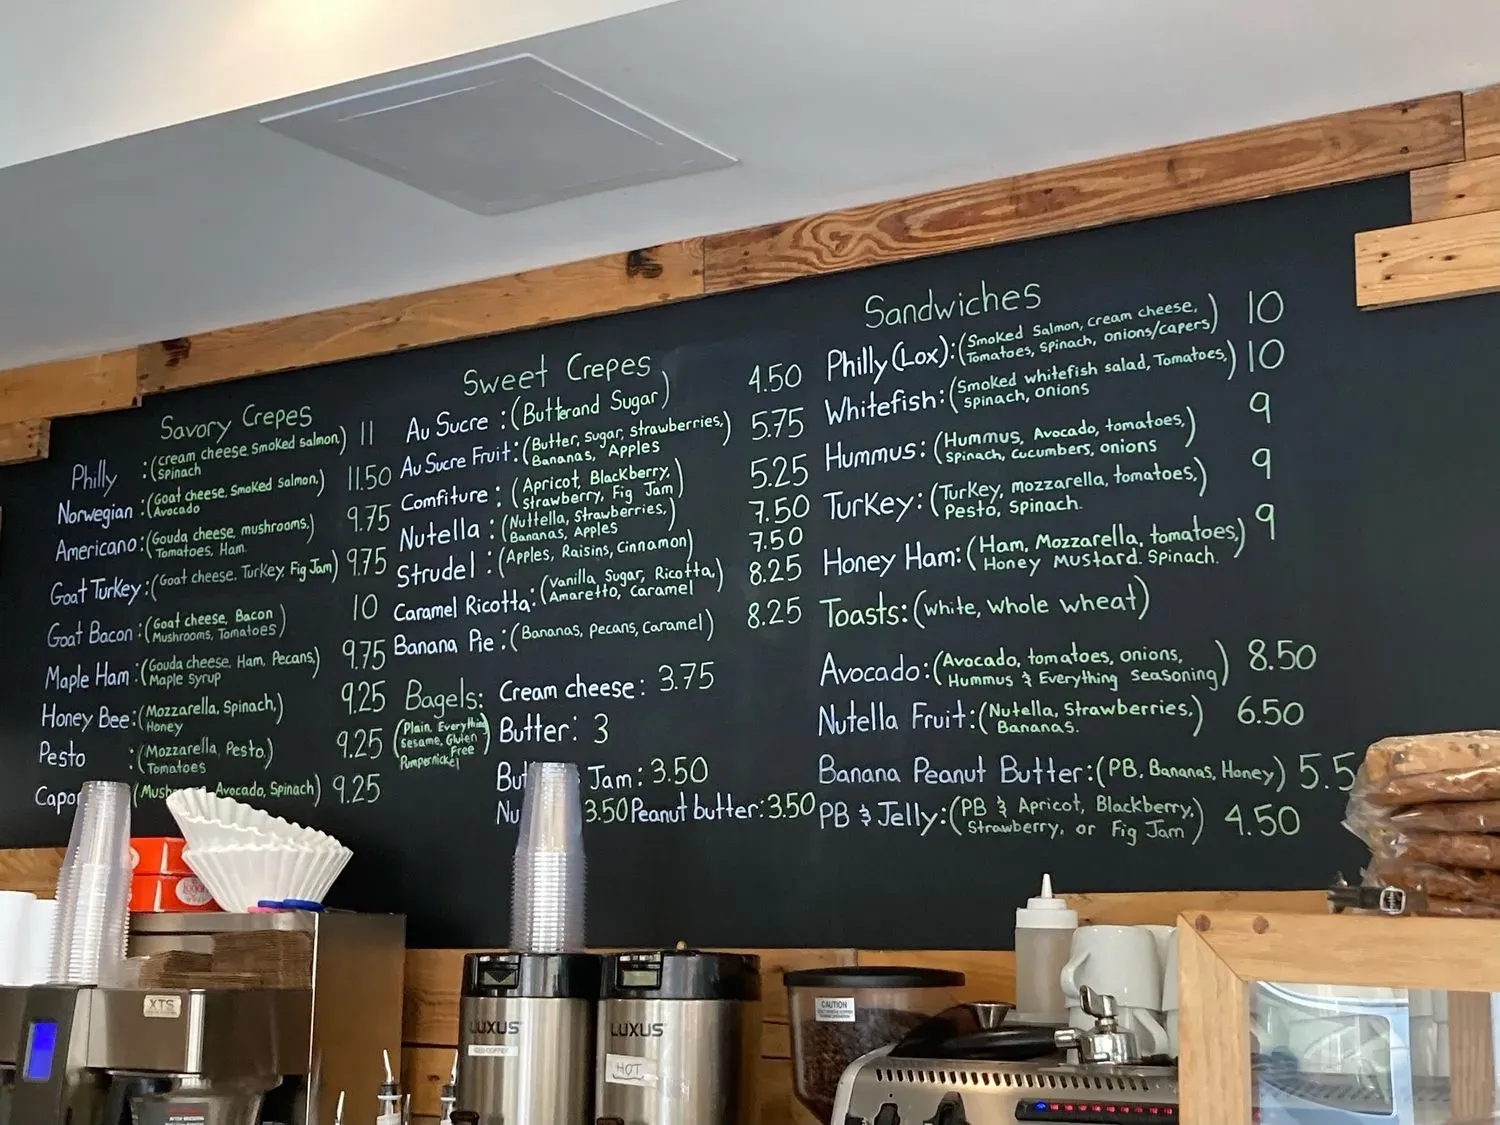 Savory Crepes
Philly : (cream cheese, smoked salmon,) 11
spinach
Norwegian : (Goat cheese, smoked salmon,) 11.50
Avocado
Americano : (Gouda cheese, mushrooms,) 9.75
Tomatoes, Ham.
Goat Turkey : (Goat cheese, Turkey, Fig Jam) 9.75
Goat Bacon : (Goat cheese, Bacon) 10
Mushrooms, Tomatoes
Maple Ham : (Gouda cheese, Ham, Pecans,) 9.75
Maple syrup
Honey Bee : (Mozzarella, Spinach,) 9.25
Honey
Pesto : (Mozzarella, Pesto,) 9.25
Tomatoes
Avocado, Spinach) 9.25
Sweet Crepes
Au Sucre : (Butter and Sugar) 4.50
Au Sucre Fruit : (Butter, sugar, strawberries,) 5.75
Bananas, Apples
Comfiture : (Apricot, Blackberry,) 5.25
strawberry, Fig Jam
Nutella : (Nuttella, Strawberries,) 7.50
Bananas, Apples
Strudel : (Apples, Raisins, Cinnamon) 7.50
Caramel Ricotta : (Vanilla Sugar, Ricotta,) 8.25
Amaretto, Caramel
Banana Pie : (Bananas, pecans, Caramel) 8.25
Bagels:
(Plain, Everything
Sesame, Gluten
Free
Pumpernickel
Cream cheese : 3.75
Butter : 3
Jam : 3.50
3.50 Peanut butter : 3.50
Sandwiches
Philly (Lox) : (Smoked Salmon, cream cheese,) 10
Tomatoes, Spinach, onions/capers
Whitefish : (Smoked whitefish salad, Tomatoes,) 10
spinach, onions
Hummus : (Hummus, Avocado, tomatoes,) 9
Spinach, cucumbers, onions
Turkey : (Turkey, mozzarella, tomatoes,) 9
Pesto, Spinach.
Honey Ham : (Ham, Mozzarella, tomatoes,) 9
Honey Mustard. Spinach.
Toasts : (white, whole wheat)
Avocado : (Avocado, tomatoes, onions,) 8.50
Hummus & Everything Seasoning
Nutella Fruit : (Nutella, Strawberries,) 6.50
Bananas.
Banana Peanut Butter : (PB, Bananas, Honey) 5.5
PB & Jelly : (PB & Apricot, Blackberry,) 4.50
Strawberry, or Fig Jam
XTS
LUXUS
LUXUS
HOT
CAUTION